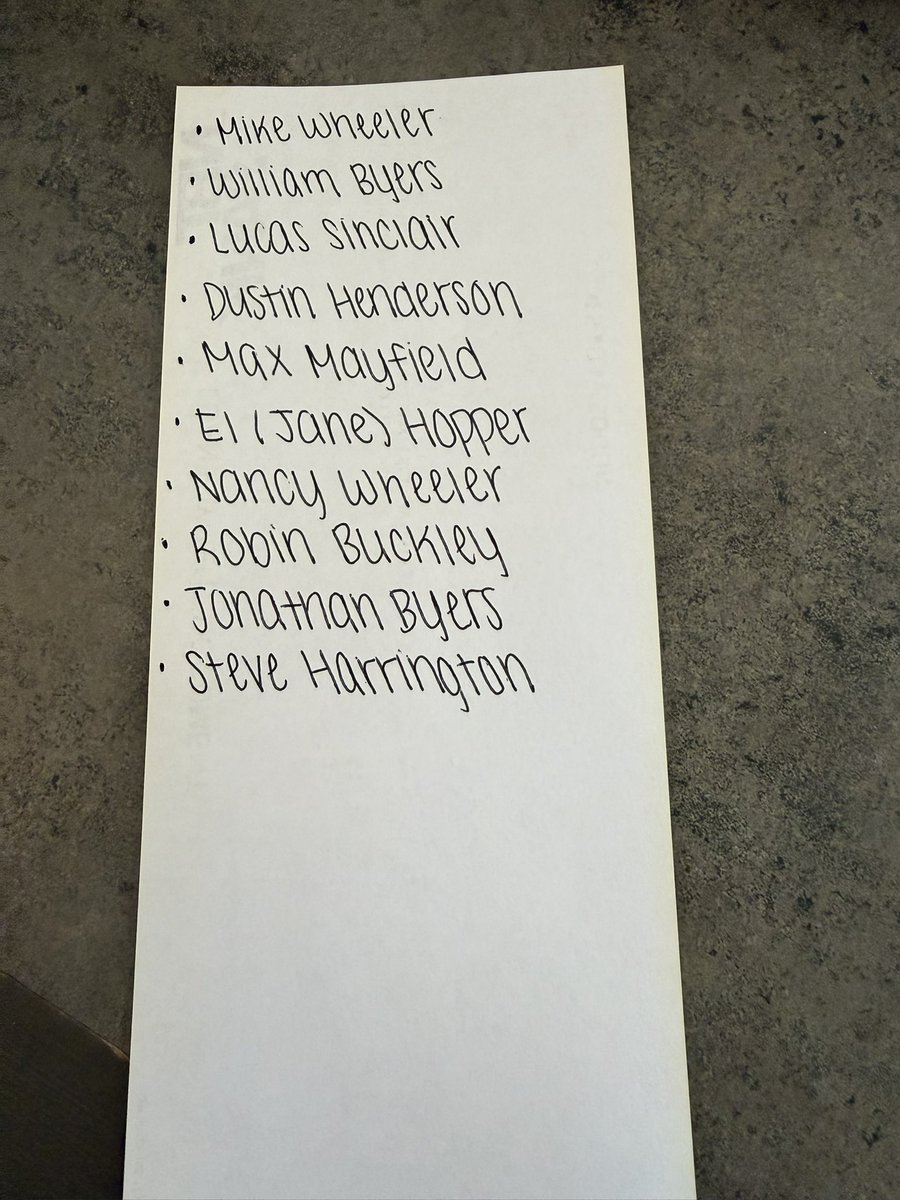 • Mike Wheeler
• William Byers
• Lucas Sinclair
• Dustin Henderson
• Max Mayfield
• El (Jane) Hopper
• Nancy Wheeler
• Robin Buckley
• Jonathan Byers
• Steve Harrington